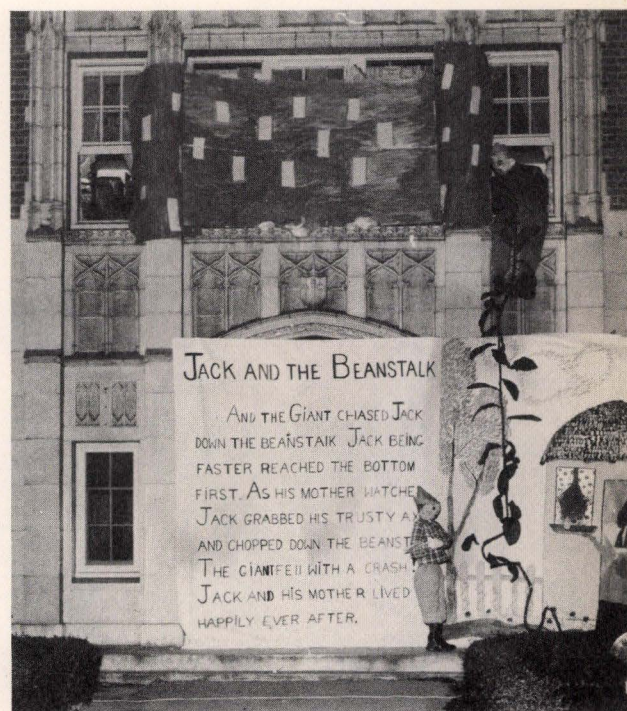 JACK AND THE BEANSTALK
AND THE GIANT CHASED JACK
DOWN THE BEANSTALK JACK BEING
FASTER REACHED THE BOTTOM
FIRST. AS HIS MOTHER WATCHE
JACK GRABBED HIS TRUSTY A
AND CHOPPED DOWN THE BEANST
THE GIANT FELL WITH A CRASH
JACK AND HIS MOTHER LIVED
HAPPILY EVER AFTER.